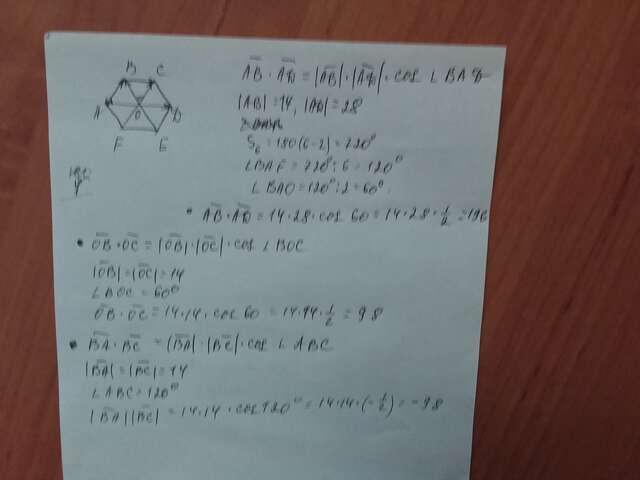 B C
A O D
F E
A̅B̅ · A̅D̅ = |A̅B̅| · |A̅D̅| · cos ∠BAD
|AB| = 14, |AD| = 28
S₆ = 180(6-2) = 720°
∠BAF = 720° : 6 = 120°
∠BAO = 120° : 2 = 60°.
• A̅B̅ · A̅D̅ = 14 · 28 · cos 60 = 14 · 28 · 1/2 = 196
• O̅B̅ · O̅C̅ = |O̅B̅| · |O̅C̅| · cos ∠BOC
|O̅B̅| = |O̅C̅| = 14
∠BOC = 60°
O̅B̅ · O̅C̅ = 14 · 14 · cos 60 = 14 · 14 · 1/2 = 98
• B̅A̅ · B̅C̅ = |B̅A̅| · |B̅C̅| · cos ∠ABC
|B̅A̅| = |B̅C̅| = 14
∠ABC = 120°
|B̅A̅||B̅C̅| = 14 · 14 · cos 120° = 14 · 14 · (-1/2) = -98